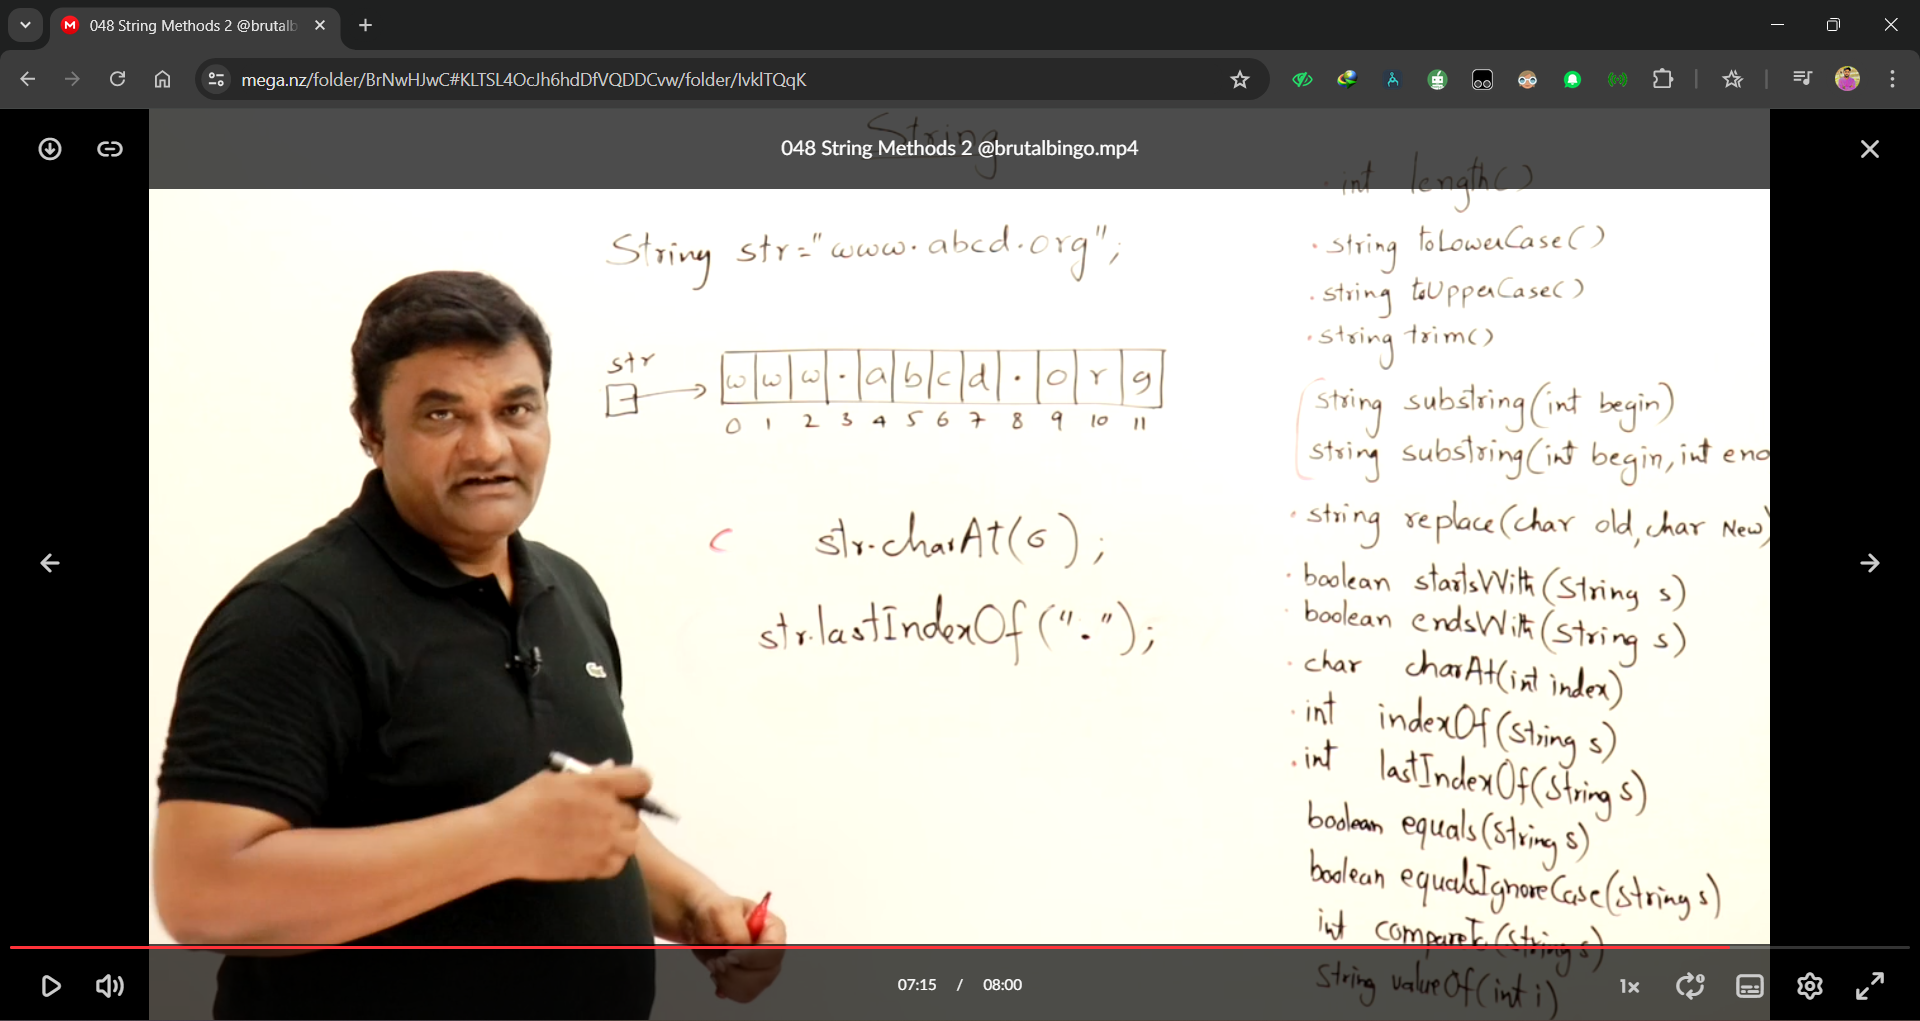 048 String Methods 2 @brutalb
mega.nz/folder/BrNwHJwC#KLTSL4OcJh6hdDfVQDDCvw/folder/IvklTQqK
String
048 String Methods 2 @brutalbingo.mp4
String str="www.abcd.org";
str
w w w . a b c d . o r g
0 1 2 3 4 5 6 7 8 9 10 11
c str.charAt(6);
str.lastIndexOf(".");
· int length()
· string toLowerCase()
· string toUpperCase()
· string trim()
string substring(int begin)
string substring(int begin, int en
· string replace(char old, char New)
· boolean startsWith(String s)
· boolean endsWith(String s)
· char charAt(int index)
· int indexOf(String s)
· int lastIndexOf(String s)
boolean equals(String s)
boolean equalsIgnoreCase(String s)
int compareTo(String s)
String valueOf(int i)
07:15 / 08:00
1x